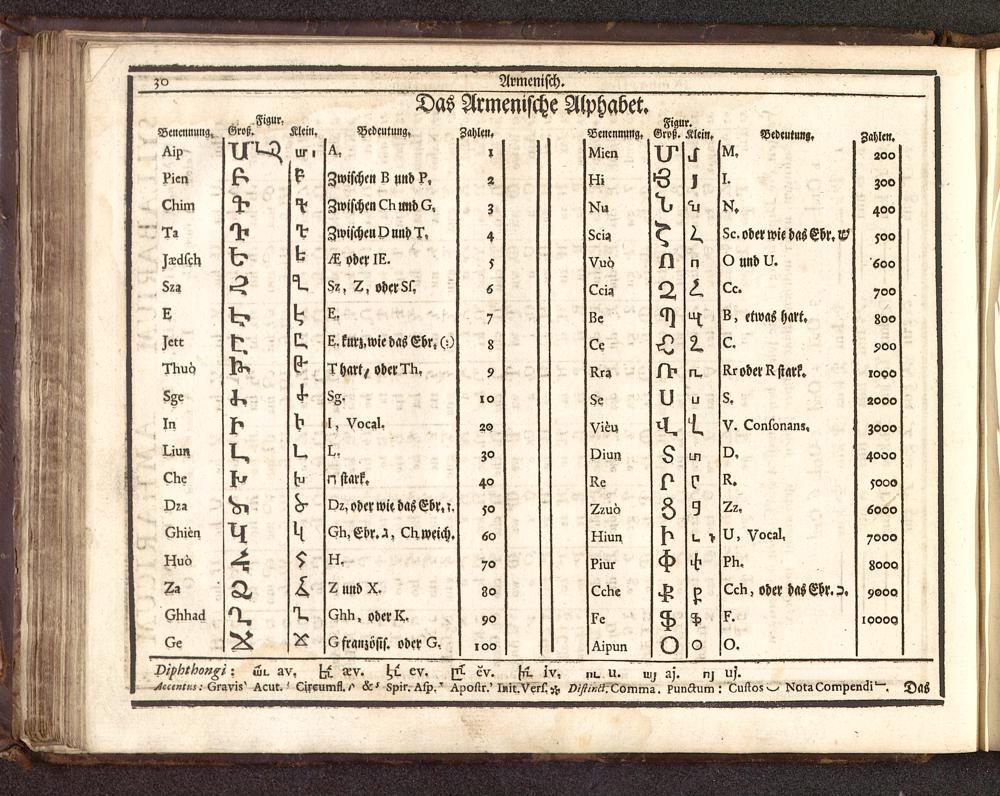 30 Armenisch.
Das Armenische Alphabet.
Benennung. Figur. Groß. Klein. Bedeutung. Zahlen.
Aip Ա ա A. 1
Pien Բ բ Zwischen B und P. 2
Chim Գ գ Zwischen Ch und G. 3
Ta Դ դ Zwischen D und T. 4
Jædsch Ե ե Æ oder IE. 5
Sza Զ զ Sz, Z, oder Sſ. 6
E Է է E. 7
Jett Ը ը E. kurz, wie das Ebr. (:) 8
Thuò Թ թ T hart, oder Th. 9
Sge Ժ ժ Sg. 10
In Ի ի I, Vocal. 20
Liun Լ լ L. 30
Che Խ խ ח stark. 40
Dza Ծ ծ Dz, oder wie das Ebr. ז. 50
Ghièn Կ կ Gh, Ebr. ג, Ch weich. 60
Huò Հ հ H. 70
Za Ձ ձ Z und X. 80
Ghhad Ղ ղ Ghh, oder K. 90
Ge Ճ ճ G französis. oder G. 100
Benennung. Figur. Groß. Klein. Bedeutung. Zahlen.
Mien Մ մ M. 200
Hi Յ յ I. 300
Nu Ն ն N. 400
Scia Շ շ Sc. oder wie das Ebr. ש 500
Vuò Ո ո O und U. 600
Ccia Չ չ Cc. 700
Be Պ պ B, etwas hart. 800
Ce Ջ ջ C. 900
Rra Ռ ռ Rr oder R stark. 1000
Se Ս ս S. 2000
Vièu Վ վ V. Consonans. 3000
Diun Տ տ D. 4000
Re Ր ր R. 5000
Zzuò Ց ց Zz. 6000
Hiun Ւ ւ U, Vocal. 7000
Piur Փ փ Ph. 8000
Cche Ք ք Cch, oder das Ebr. כ. 9000
Fe Ֆ ֆ F. 10000
Aipun Օ օ O.
Diphthongi: av, æv. ev. ĕv. iv, ու u. այ aj. ոյ uj.
Accentus: Gravis Acut. Circumfl. & Spir. Asp. Apostr. Init. Vers. Distinct. Comma. Punctum: Custos Nota Compendi. Das